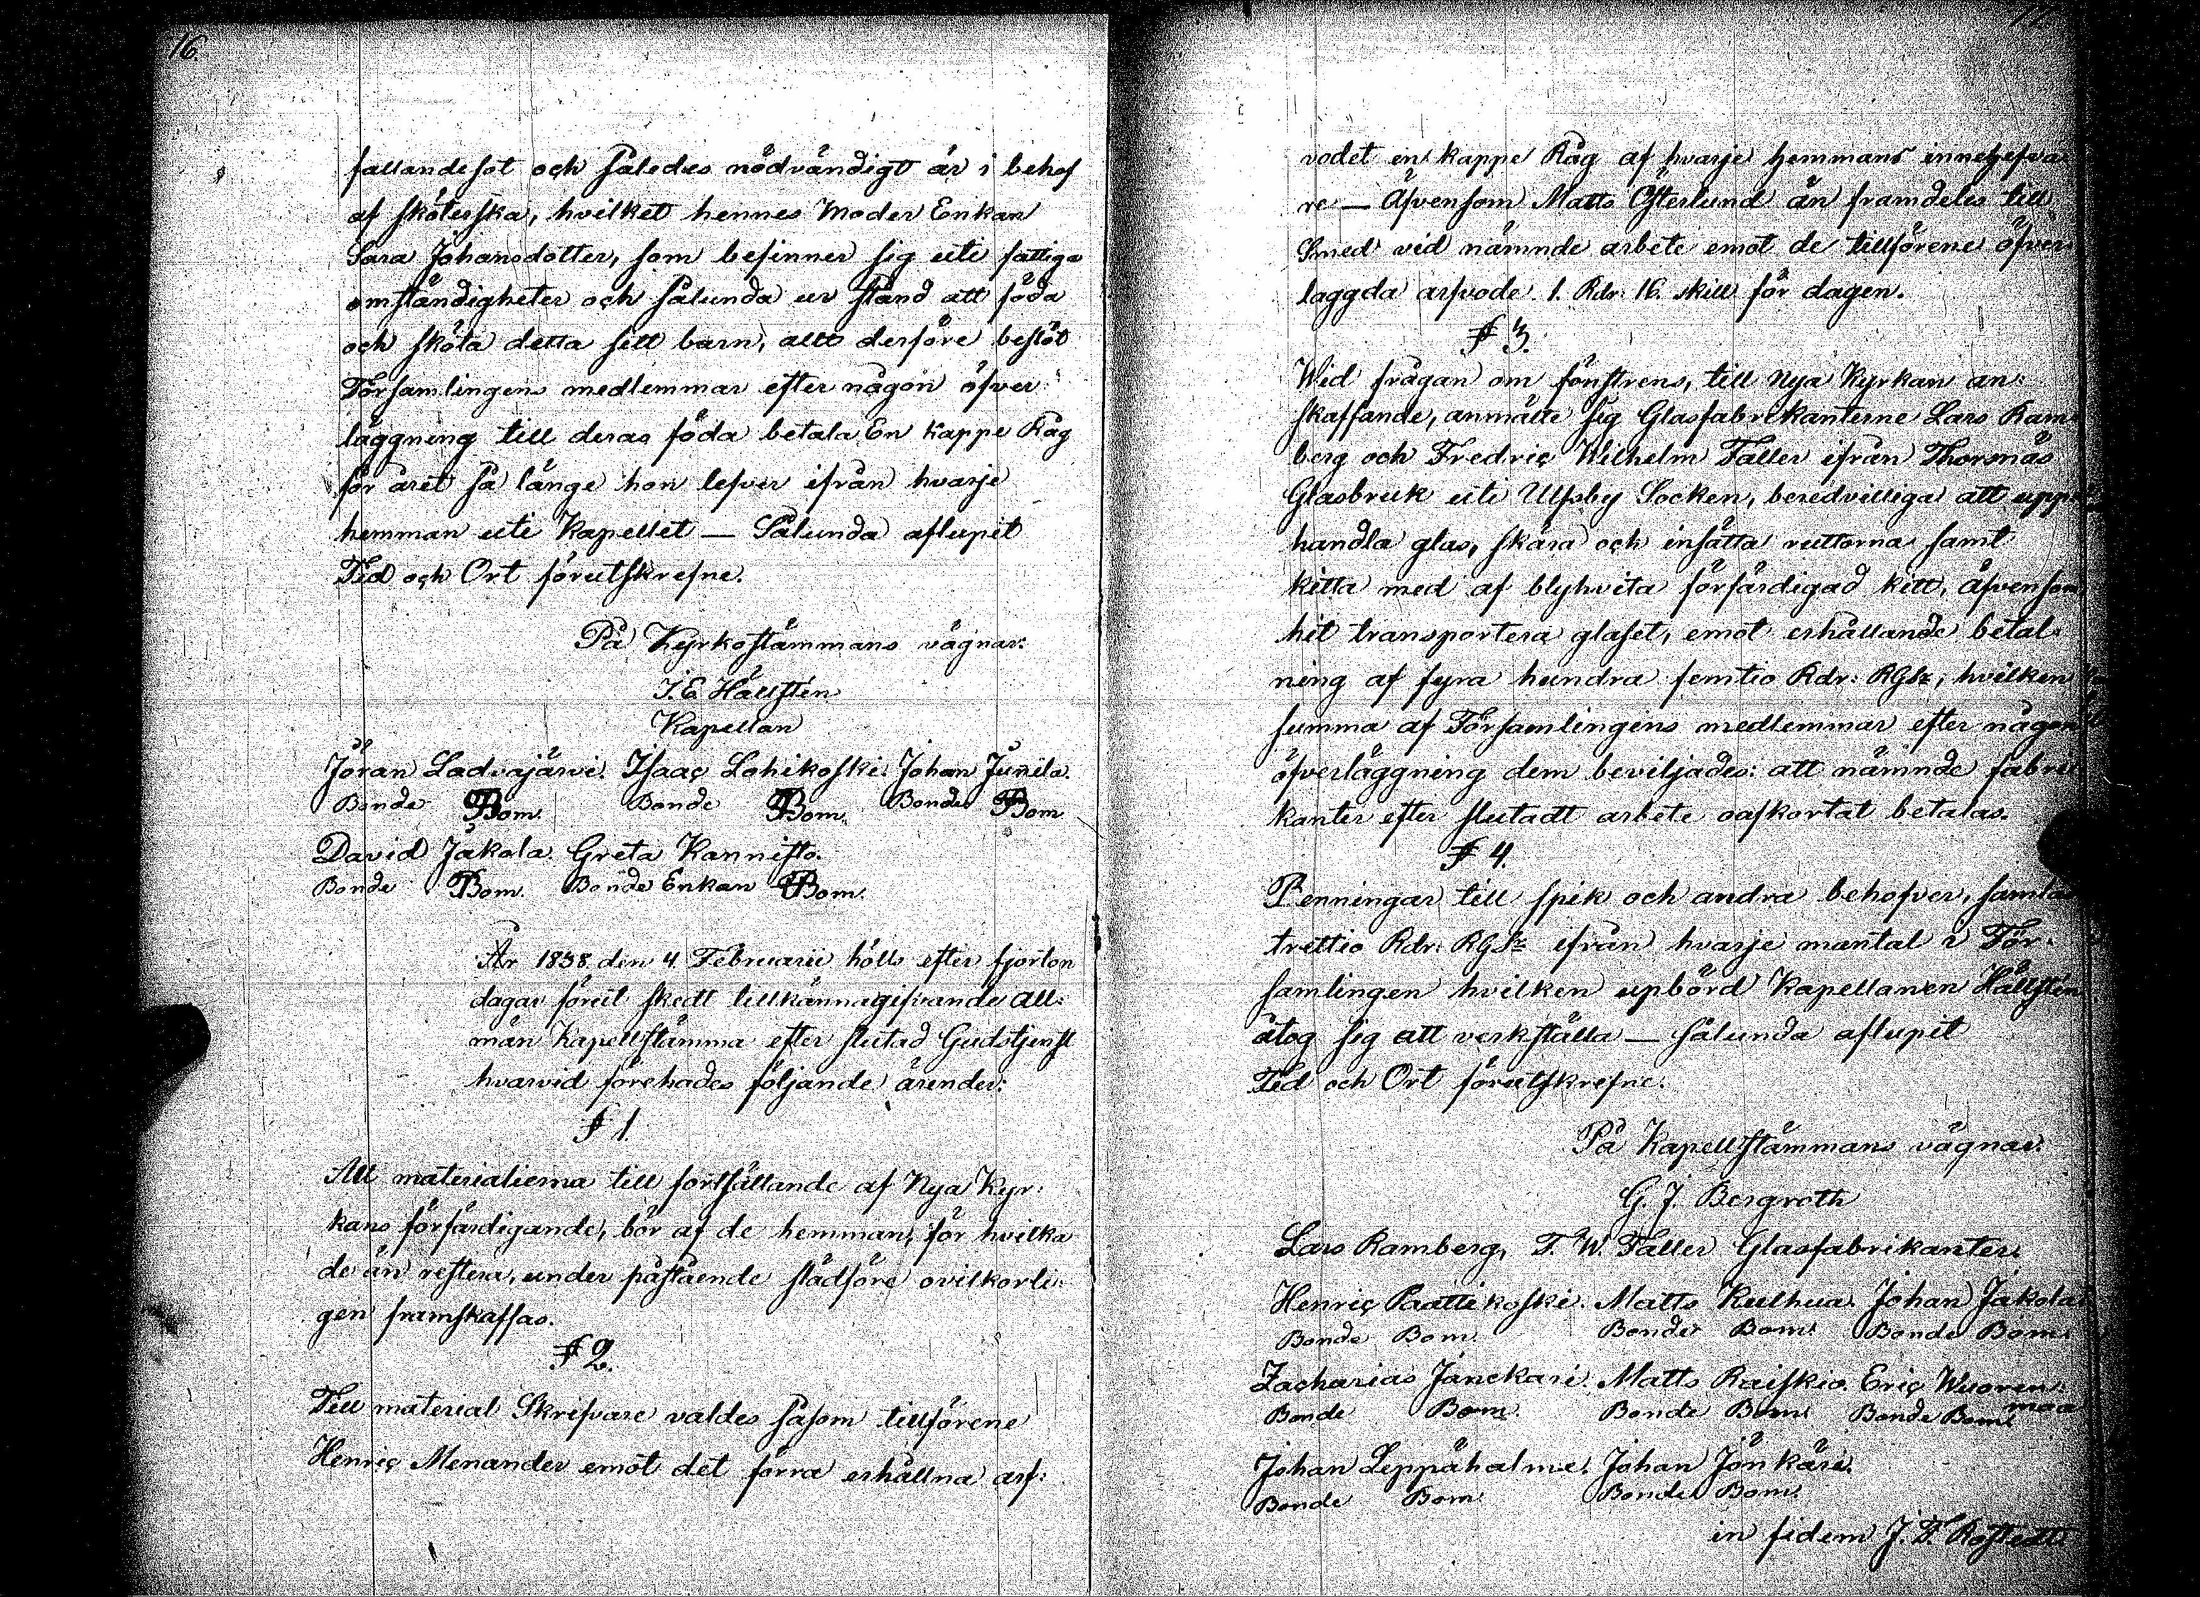 16.
fallandesot och således nödvändigt är i behof
af sköterska, hvilket hennes Moder Enkan
Sara Johansdotter, som befinner sig uti fattiga
omständigheter och sålunda ur stånd att föda
och sköta detta sitt barn, allts derföre beslöt
Församlingens medlemmar efter någon öfver-
läggning till deras föda betala En Kappe Råg
för året så länge hon lefver ifrån hvarje
hemman uti Kapellet — Sålunda aflupit
Tid och Ort förutskrefne.
På Kyrkostämmans vägnar:
J. E. Hällstén
Kapellan
Jöran Ladvajärvi. Isaac Lohikoski. Johan Junila.
Bonde Bom. Bonde Bom. Bonde Bom.
David Jakola. Greta Kannisto.
Bonde Bom. Bonde Enkan Bom.
År 1838 den 4 Februarii hölls efter fjorton
dagar förut skedt tillkännagifvande all-
män Kapellstämma efter slutad Gudstjenst
hvarvid förehades följande ärender:
§ 1.
All materialierna till fortsättande af Nya Kyr-
kans förfärdigande, bör af de hemman, för hvilka
de än restera, under påstående slädföre ovilkorli-
gen framskaffas.
§ 2.
Till material Skrifvare valdes såsom tillförene
Henric Menander emot det förra erhållna arf-
vodet en kappe Råg af hvarje hemmans innehafva
re — Äfvensom Matts Österlund än framdeles till
Smed vid nämnde arbete emot de tillförene öfver-
laggda arfvode 1. Rdr: 16. skill för dagen.
§ 3.
Wid frågan om fönstrens, till Nya Kyrkan an-
skaffande, anmälte sig Glasfabrikanterne Lars Ram
berg och Fredric Wilhelm Faller ifrån Thorsnäs
Glasbruk uti Ulfsby Socken, beredvilliga att upp-
handla glas, skära och insätta ruttorna samt
kitta med af blyhvita förfärdigad kitt, äfvensom
hit transportera glaset, emot erhållande betal-
ning af fyra hundra femtio Rdr: RGSz, hvilken
summa af Församlingens medlemmar efter någon
öfverläggning dem beviljades: att nämnde fabri
kanter efter slutadt arbete oafkortat betalas.
§ 4.
Penningar till spik och andra behofver, samlas
trettio Rdr: RGSz ifrån hvarje mantal i För-
samlingen hvilken upbörd Kapellanen Hällstén
åtog sig att verkställa — sålunda aflupit
Tid och Ort förutskrefne.
På Kapellstämmans vägnar:
G. J. Bergroth
Lars Ramberg, F. W. Faller Glasfabrikanter.
Henric Paattikoski. Matts Kulhua. Johan Jakola
Bonde Bom. Bonde Bom. Bonde Bom.
Zacharias Jänckäri. Matts Raiskio. Eric Wuoren-
maa
Bonde Bom. Bonde Bom. Bonde Bom.
Johan Leppähalme. Johan Jönkäri.
Bonde Bom. Bonde Bom.
in fidem J. F. Rostedt